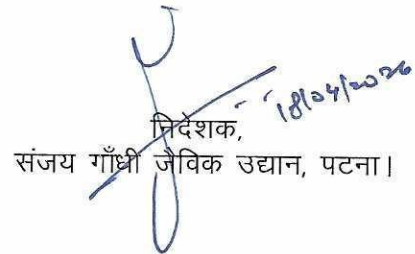 18/04/2026
निदेशक,
संजय गाँधी जैविक उद्यान, पटना।